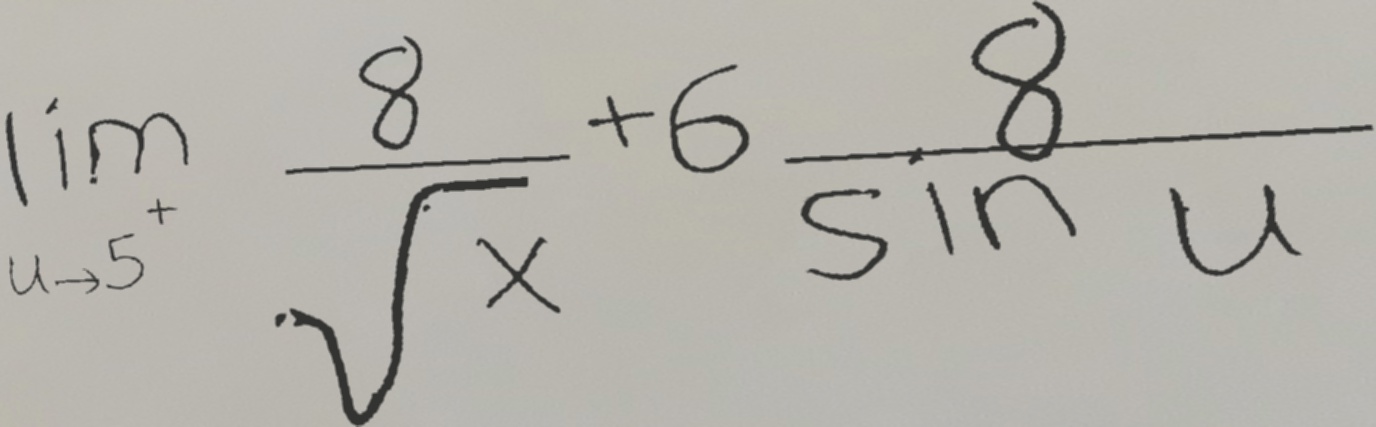 \lim_{u \to 5^+} \frac{8}{\sqrt{x}} + 6 \frac{8}{\sin u}